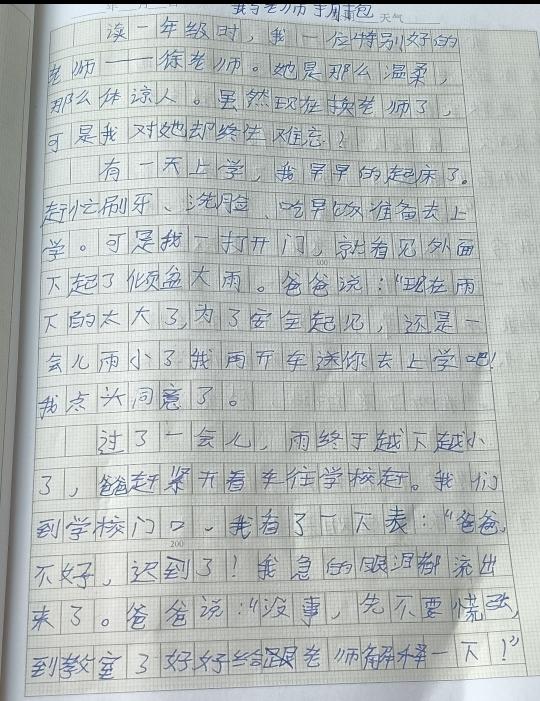 我与老师手册包
天气
读一年级时，我一位特别好的
老师——徐老师。她是那么温柔，
那么体谅人。虽然现在换老师了，
可是我对她却终生难忘？
有一天上学，我早早的起床了。
赶忙刷牙、洗脸、吃早饭准备去上
学。可是我一打开门，就看见外面
100
下起了倾盆大雨。爸爸说：“现在雨
下的太大了，为了安全起见，还是一
会儿雨小了我再开车送你去上学吧！
我点头同意了。
过了一会儿，雨终于越下越小
了，爸爸赶紧开着车往学校赶。我们
到学校门口，我看了一下表：“爸爸，
200
不好，迟到了！我急的眼泪都流出
来了。爸爸说：“没事，先不要慌张，
到教室了好好给跟老师解释一下！”